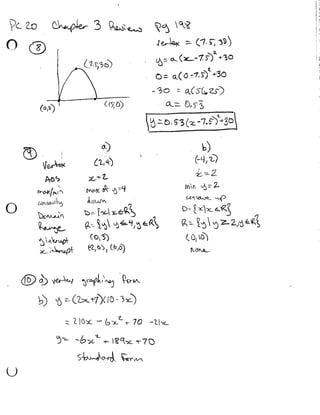 PC 20 Chapter 3 Review pg 198
⑧
vertex = (7.5, 30)
(7.5, 30)
(0,0)
(15,0)
y = a(x-7.5)² +30
0 = a(0-7.5)² +30
-30 = a(56.25)
a = 0.53
y=0.53(x-7.5)²+30
⑨ a) b)
Vertex (2,4) (-4,2)
AOS x=2
max/min max at y=4 min y=2
concavity down concave up
Domain D={x|x∈R} D={x|x∈R}
Range R={y|y≤4,y∈R} R={y|y≥2,y∈R}
y intercept (0, 10)
x intercept none
⑩ a) vertex graphing form
b) y = (2x+7)(10-3x)
= 210x - 6x² + 70 -21x
y = -6x² + 189x +70
standard form